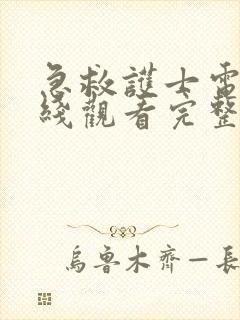 急救護士電
綫觀看完整
烏魯木齊—長